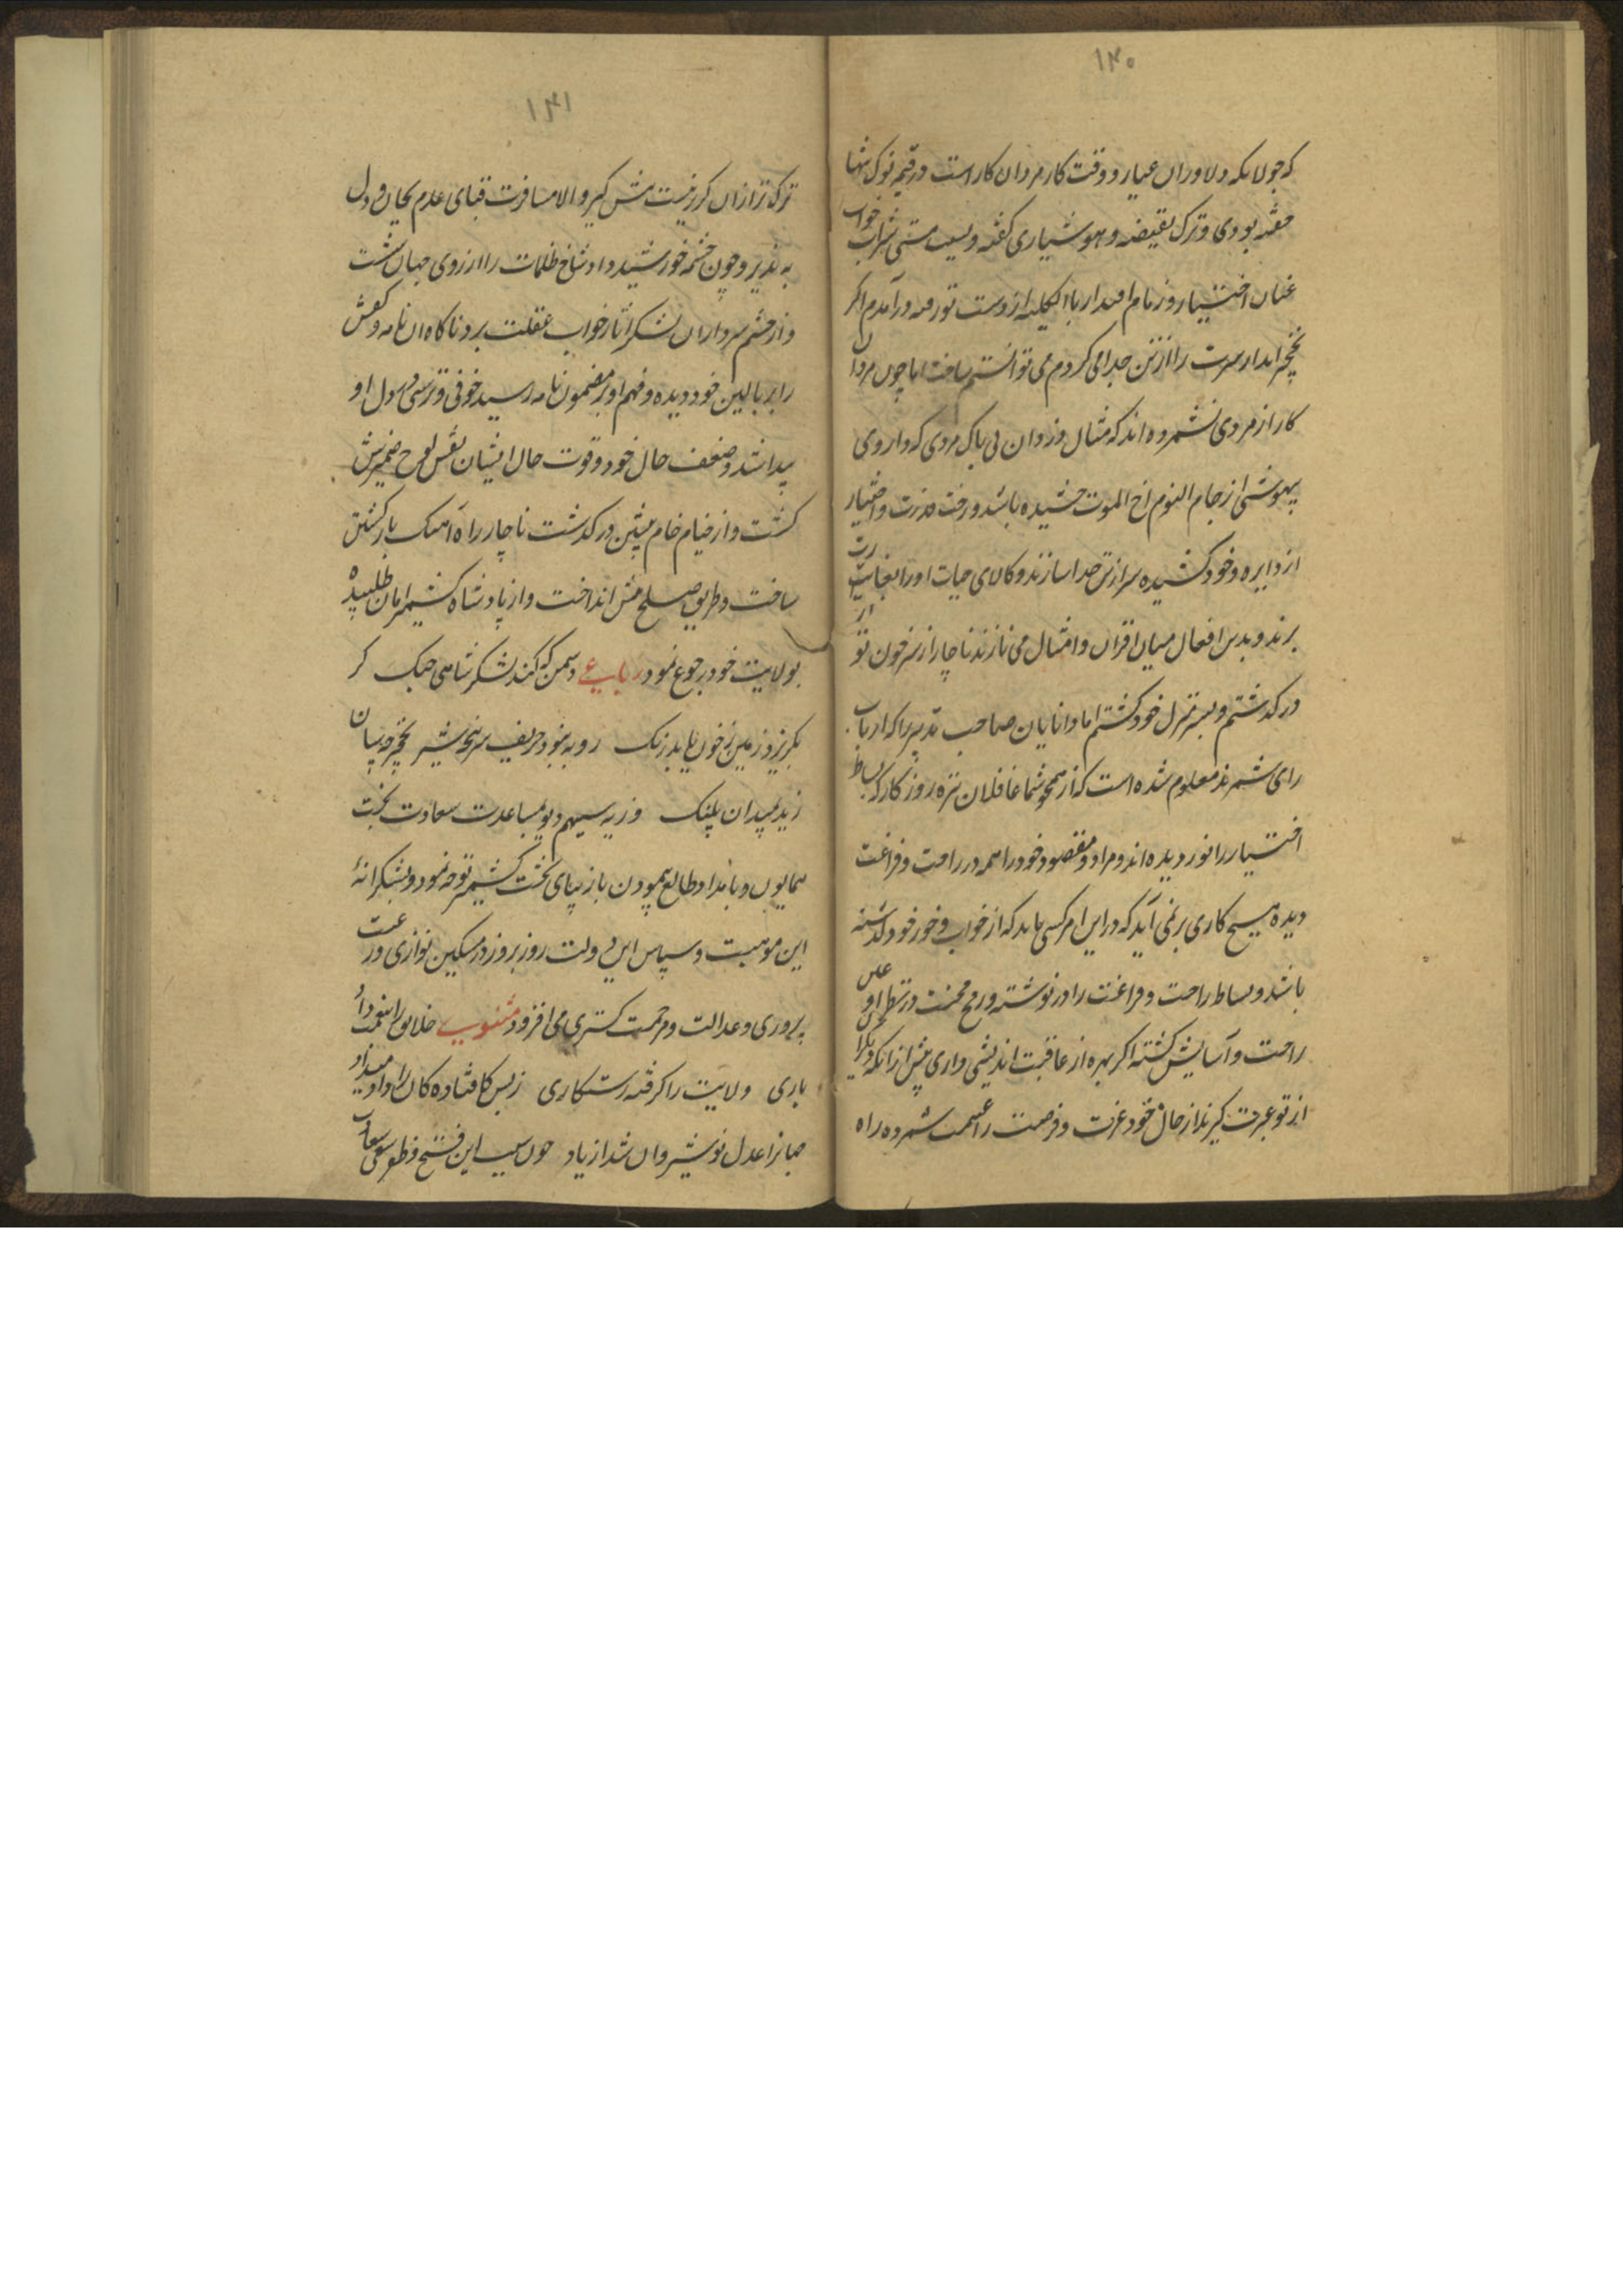 ۱۴۰
که جولانکه دلاوران عیار و وقت کار مردان کار است در قیمه نوک تنها
خفته بودی و ترک بقیضه و هوشیاری گفته و بسبب مستی شراب خواب
عنان اختیار و زمام اقتدار بالکلیه از دست تو رفته درآمدم اکر
بخنجر ابدار سرت را از تن جدا می کردم می توانستم ساخت اما چون مردان
کار از مردی نشمرده اند که مثال دزدان بی باک مردی که داروی
بیهوشی از جام النوم اخ الموت چشیده باشد و رخت قدرت و اختیار
از دایره وخود کشیده سر از تن جدا سازند و کالای حیات او را بغارت
برند و بدین افعال میان اقران و امثال می نازند ناچار از سر خون تو
در کذشتم و بسر منزل خود کشتم اما دانایان صاحب تدبیر را که ارباب
رای شمرند معلوم شده است که از همچو شما غافلان تیره روزکار که بساط
اختیار را نوردیده اند و مراد و مقصود خود را همه در راحت و فراغت
دیده هیچ کاری بر نمی آید که در این امر کسی باید که از خواب و خور خود کذشته
باشد و بساط راحت و فراغت را در نوشته و رنج و محنت در نظر او عین
راحت و آسایش کشته اکر بهره از عاقبت اندیشی داری پیش از انکه دیکران
از تو عبرت کیرند از حال خود عزت و فرصت را غنیمت شمرده راه
۱۴۱
ترک تر ازان کریزیست پیش کیر والا مسافرت قبای عدم بجان و دل
به پذیر و چون چشمه خورشید داد شاخ ظلمات را از روی جهان شست
و از چشم سرداران لشکر آثار خواب غفلت برد ناکاه ان نامه و کفش
را بر بالین خود دیده و فهم او بر مضمون نامه رسید خوفی و ترسی در دل او
پیدا شد و ضعف حال خود و قوت حال ایشان نقش لوح ضمیرش
کشت و از خیام خام پیشین در کذشت ناچار راه آهنک بازکشتن
ساخت و طریق صلح پیش انداخت و از پادشاه کشمیر امان طلبیده
بولایت خود رجوع نمود رباعی دشمن که کند لشکر شاهی جنک کر
بکریزد زمین ز خون یابد رنک روبه نبود حریف سرپنجه شیر نخچیر چه سان
زید بمیدان پلنک وزیر سیهم دیو بمساعدت سعادت بخت
همایون و بامداد طالع همچون باز بپای تخت کشمیر توجه نمود و بشکرانهٔ
این موهبت و سپاس این دولت روز بروز در مسکین نوازی و رعیت
پروری و عدالت و مرحمت کستری می افزود مثنوی خلایق را بنعمت داد
یاری ولایت را کرفته رستکاری ز بس کافتاده کان را داد میداد
جهانرا عدل نوشیروان شد از یاد چون سبب این فتح و ظفر سعی